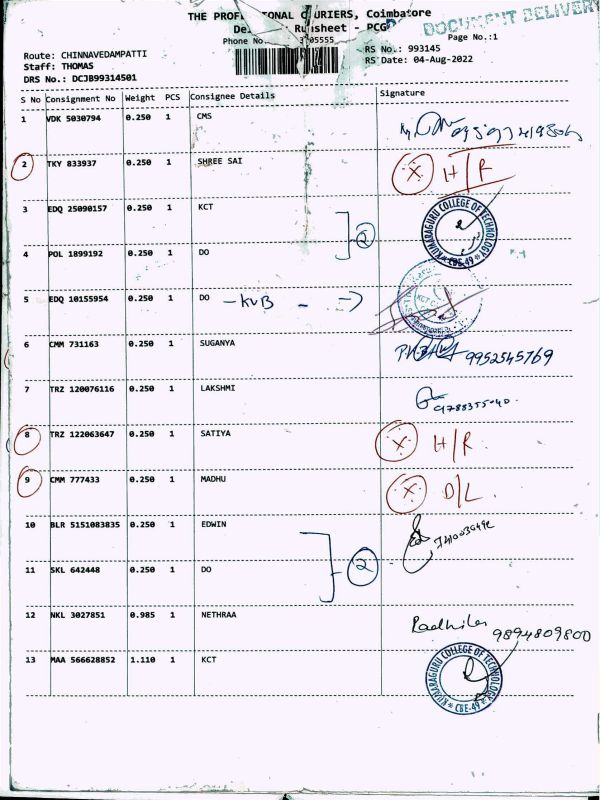 THE PROFESSIONAL COURIERS, Coimbatore
Runsheet - PCG
DOCUMENT DELIVERY
Phone No. 5555
Page No.:1
Route: CHINNAVEDAMPATTI
RS No.: 993145
Staff: THOMAS
RS Date: 04-Aug-2022
DRS No.: DCJB99314501
S No Consignment No Weight PCS Consignee Details Signature
1 VDK 5030794 0.250 1 CMS
2 TKY 833937 0.250 1 SHREE SAI X H/R
3 EDQ 25090157 0.250 1 KCT
KUMARAGURU COLLEGE OF TECHNOLOGY CBE-49
2
4 POL 1899192 0.250 1 DO
5 EDQ 10155954 0.250 1 DO - KVB - →
6 CMM 731163 0.250 1 SUGANYA 9952545769
7 TRZ 120076116 0.250 1 LAKSHMI
8 TRZ 122063647 0.250 1 SATIYA X H/R
9 CMM 777433 0.250 1 MADHU X D/L
10 BLR 5151083835 0.250 1 EDWIN
2
11 SKL 642448 0.250 1 DO
12 NKL 3027851 0.985 1 NETHRAA 9894809800
13 MAA 566628852 1.110 1 KCT
KUMARAGURU COLLEGE OF TECHNOLOGY CBE-49